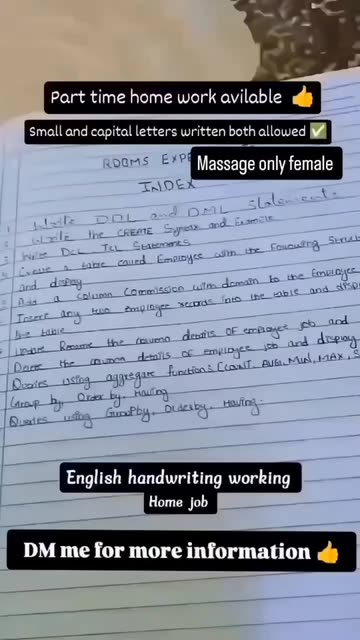 Part time home work avilable 👍
Small and capital letters written both allowed ✅
RDBMS EXPE
Massage only female
INDEX
Write DDL and DML Statements.
Write the CREATE Syntax and Example
Write DCL TCL Statements
Create a table called Employee with the following Struct
and display
Add a Column Commission with domain to the Employee
Insert any two employee records into the table and disp
the table
Rename the column details of employee job and
Delete the column details of employee job and display
Quaries using aggregate functions (COUNT, AUG, MIN, MAX, S
Group by, Order by, Having
Quaries using Groupby, Orderby, Having.
English handwriting working
Home job
DM me for more information 👍